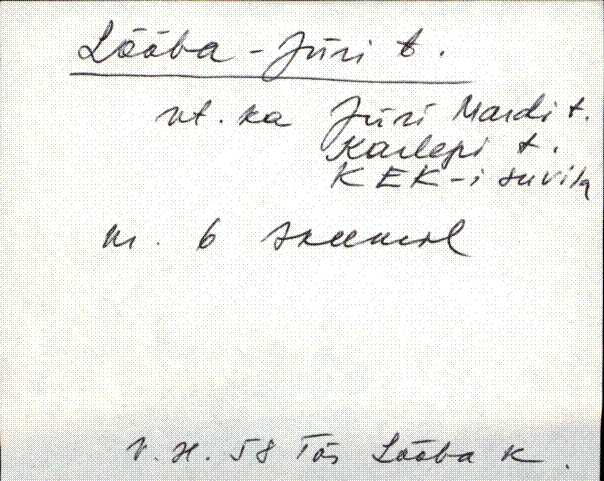 Lõõba-Jüri t.
vt. ka Jüri Mardi t.
Karlepi t.
KEK-i suvila
nr. 6 skeemil
V. H. 58 Tõs Lõõba k.